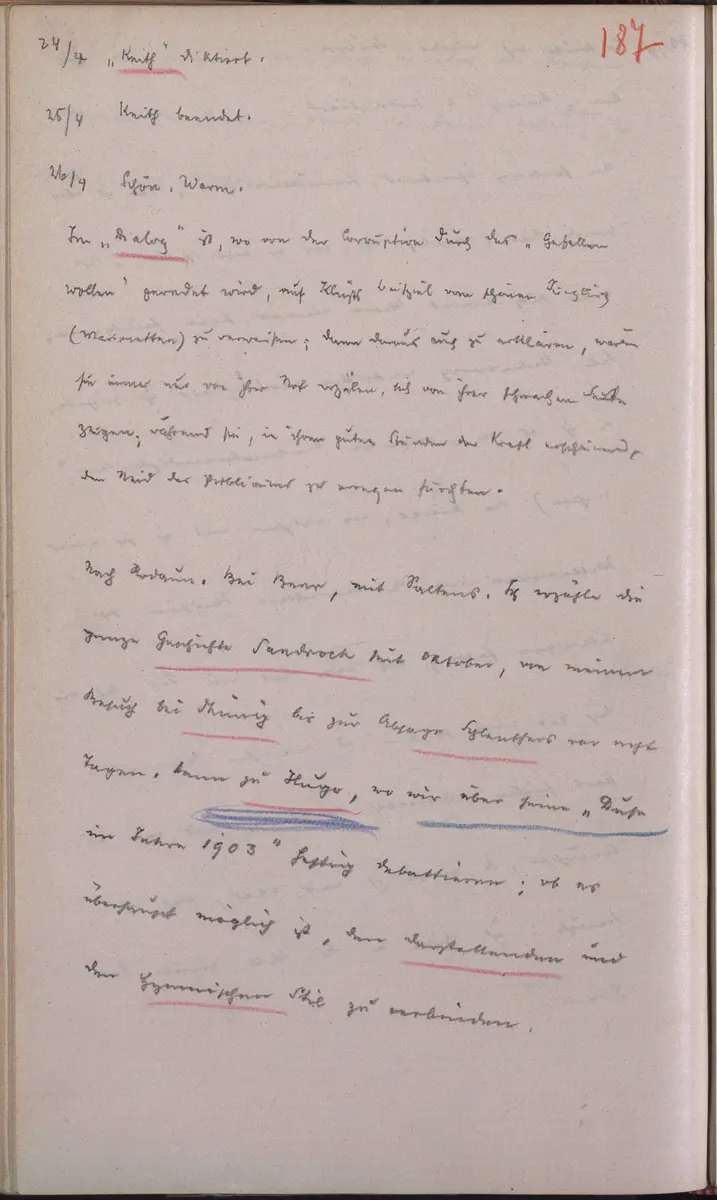 187
24/4 „Keith" diktiert.
25/4 Keith beendet.
26/4 Schön. Warm.
Im „Dialog" ist, wo von der Corruption durch das „Gefallen
wollen" geredet wird, auf Kleists Beispiel vom schönen Jüngling
(Marionetten) zu verweisen; dann daraus auch zu erklären, warum
sie immer nur von ihrer Not erzälen, sich von ihrer schwachen Seite
zeigen; während sie, in ihren guten Stunden der Kraft erscheinend,
den Neid des Publicums zu erregen fürchten.
Nach Rodaun. Bei Beer, mit Saltens. Ich erzähle die
ganze Geschichte Sandrock seit Oktober, von meinem
Besuch bei Thimig bis zur Absage Schlenthers vor acht
Tagen. Dann zu Hugo, wo wir über seine „Duse
im Jahre 1903" heftig debattieren; ob es
überhaupt möglich ist, den darstellenden und
den hymnischen Stil zu verbinden.